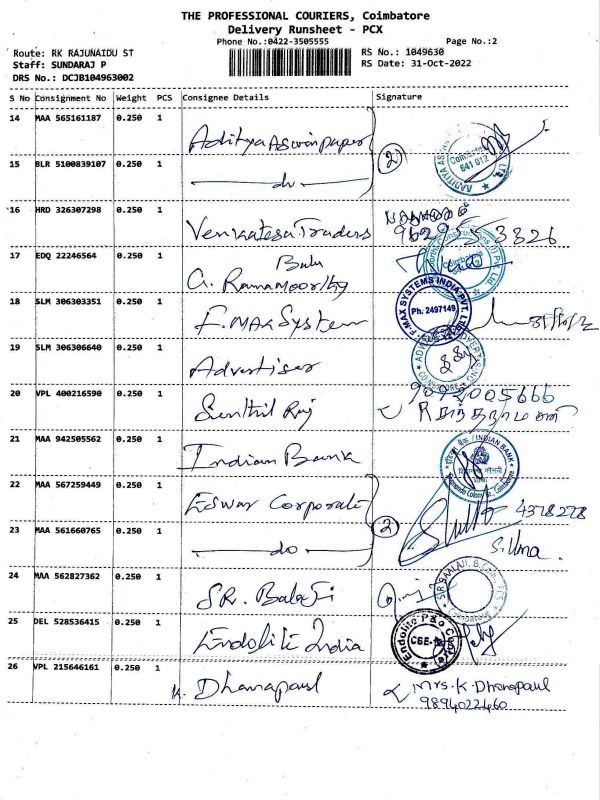 THE PROFESSIONAL COURIERS, Coimbatore
Delivery Runsheet - PCX
Phone No.:0422-3505555 Page No.:2
Route: RK RAJUNAIDU ST RS No.: 1049630
Staff: SUNDARAJ P RS Date: 31-Oct-2022
DRS No.: DCJB104963002
S No Consignment No Weight PCS Consignee Details Signature
14 MAA 565161187 0.250 1 Aditya Aswin paper 2
15 BLR 5100839107 0.250 1 do
16 HRD 326307298 0.250 1 Venkatesa Traders
17 EDQ 22246564 0.250 1 G. Ramamoorthy Balu
18 SLM 306303351 0.250 1 F. MAX System F-MAX SYSTEMS INDIA PVT. LTD Ph: 2497149
19 SLM 306306640 0.250 1 Advertiser
20 VPL 400216590 0.250 1 Senthil Raj
21 MAA 942505562 0.250 1 Indian Bank INDIAN BANK
22 MAA 567259449 0.250 1 Eswar Corporate 2 4378278
23 MAA 561660765 0.250 1 do S. Uma.
24 MAA 562827362 0.250 1 SR. Balaji
25 DEL 528536415 0.250 1 Endolite India Endolite P&O CBE
26 VPL 215646161 0.250 1 K. Dhanapaul Mrs. K. Dhanapaul
9894022460